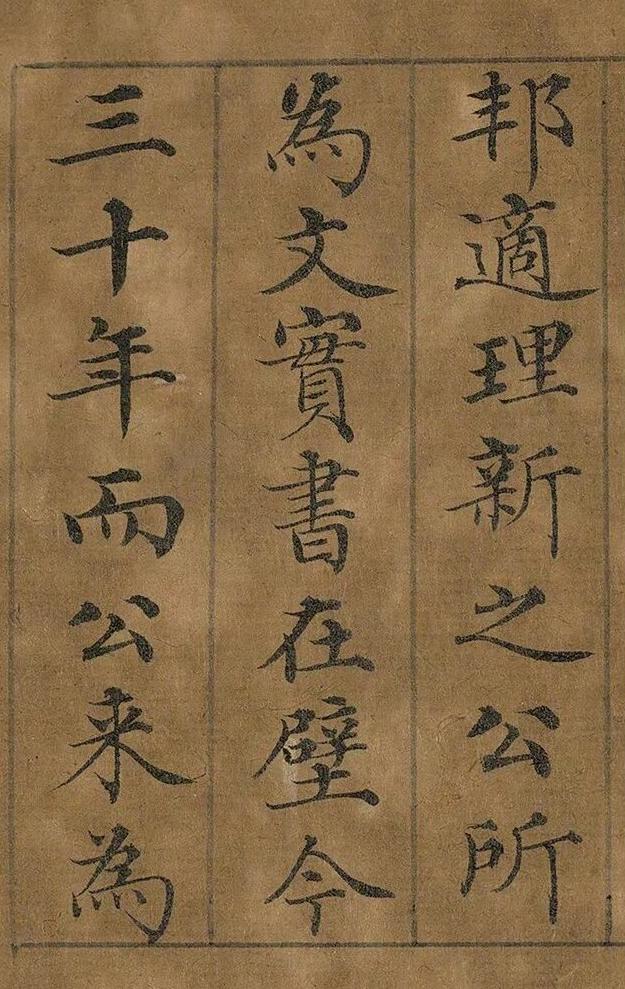 邦適理新之公所
為文實書在壁今
三十年而公来為